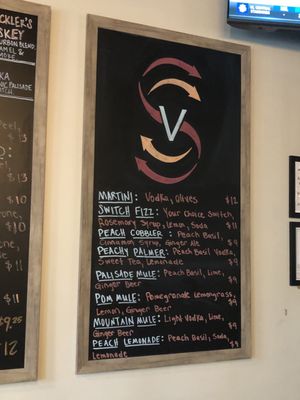 CKLER'S
SKEY
OURBON BLEND
AMEL &
MOKE
KA
PALISADE
Peel,
$13
$13
$10
rone,
$10
one,
$11
$11
$9.25
$12
V
MARTINI: Vodka, Olives $12
SWITCH FIZZ: Your Choice Switch,
Rosemary Syrup, Lemon, Soda $11
PEACH COBBLER: Peach Basil,
Cinnamon Syrup, Ginger Ale $9
PEACHY PALMER: Peach Basil Vodka,
Sweet Tea, Lemonade $9
PALISADE MULE: Peach Basil, Lime,
Ginger Beer $9
POM MULE: Pomegranate Lemongrass,
Lemon, Ginger Beer $9
MOUNTAIN MULE: Light Vodka, Lime,
Ginger Beer $9
PEACH LEMONADE: Peach Basil, Soda,
Lemonade $9